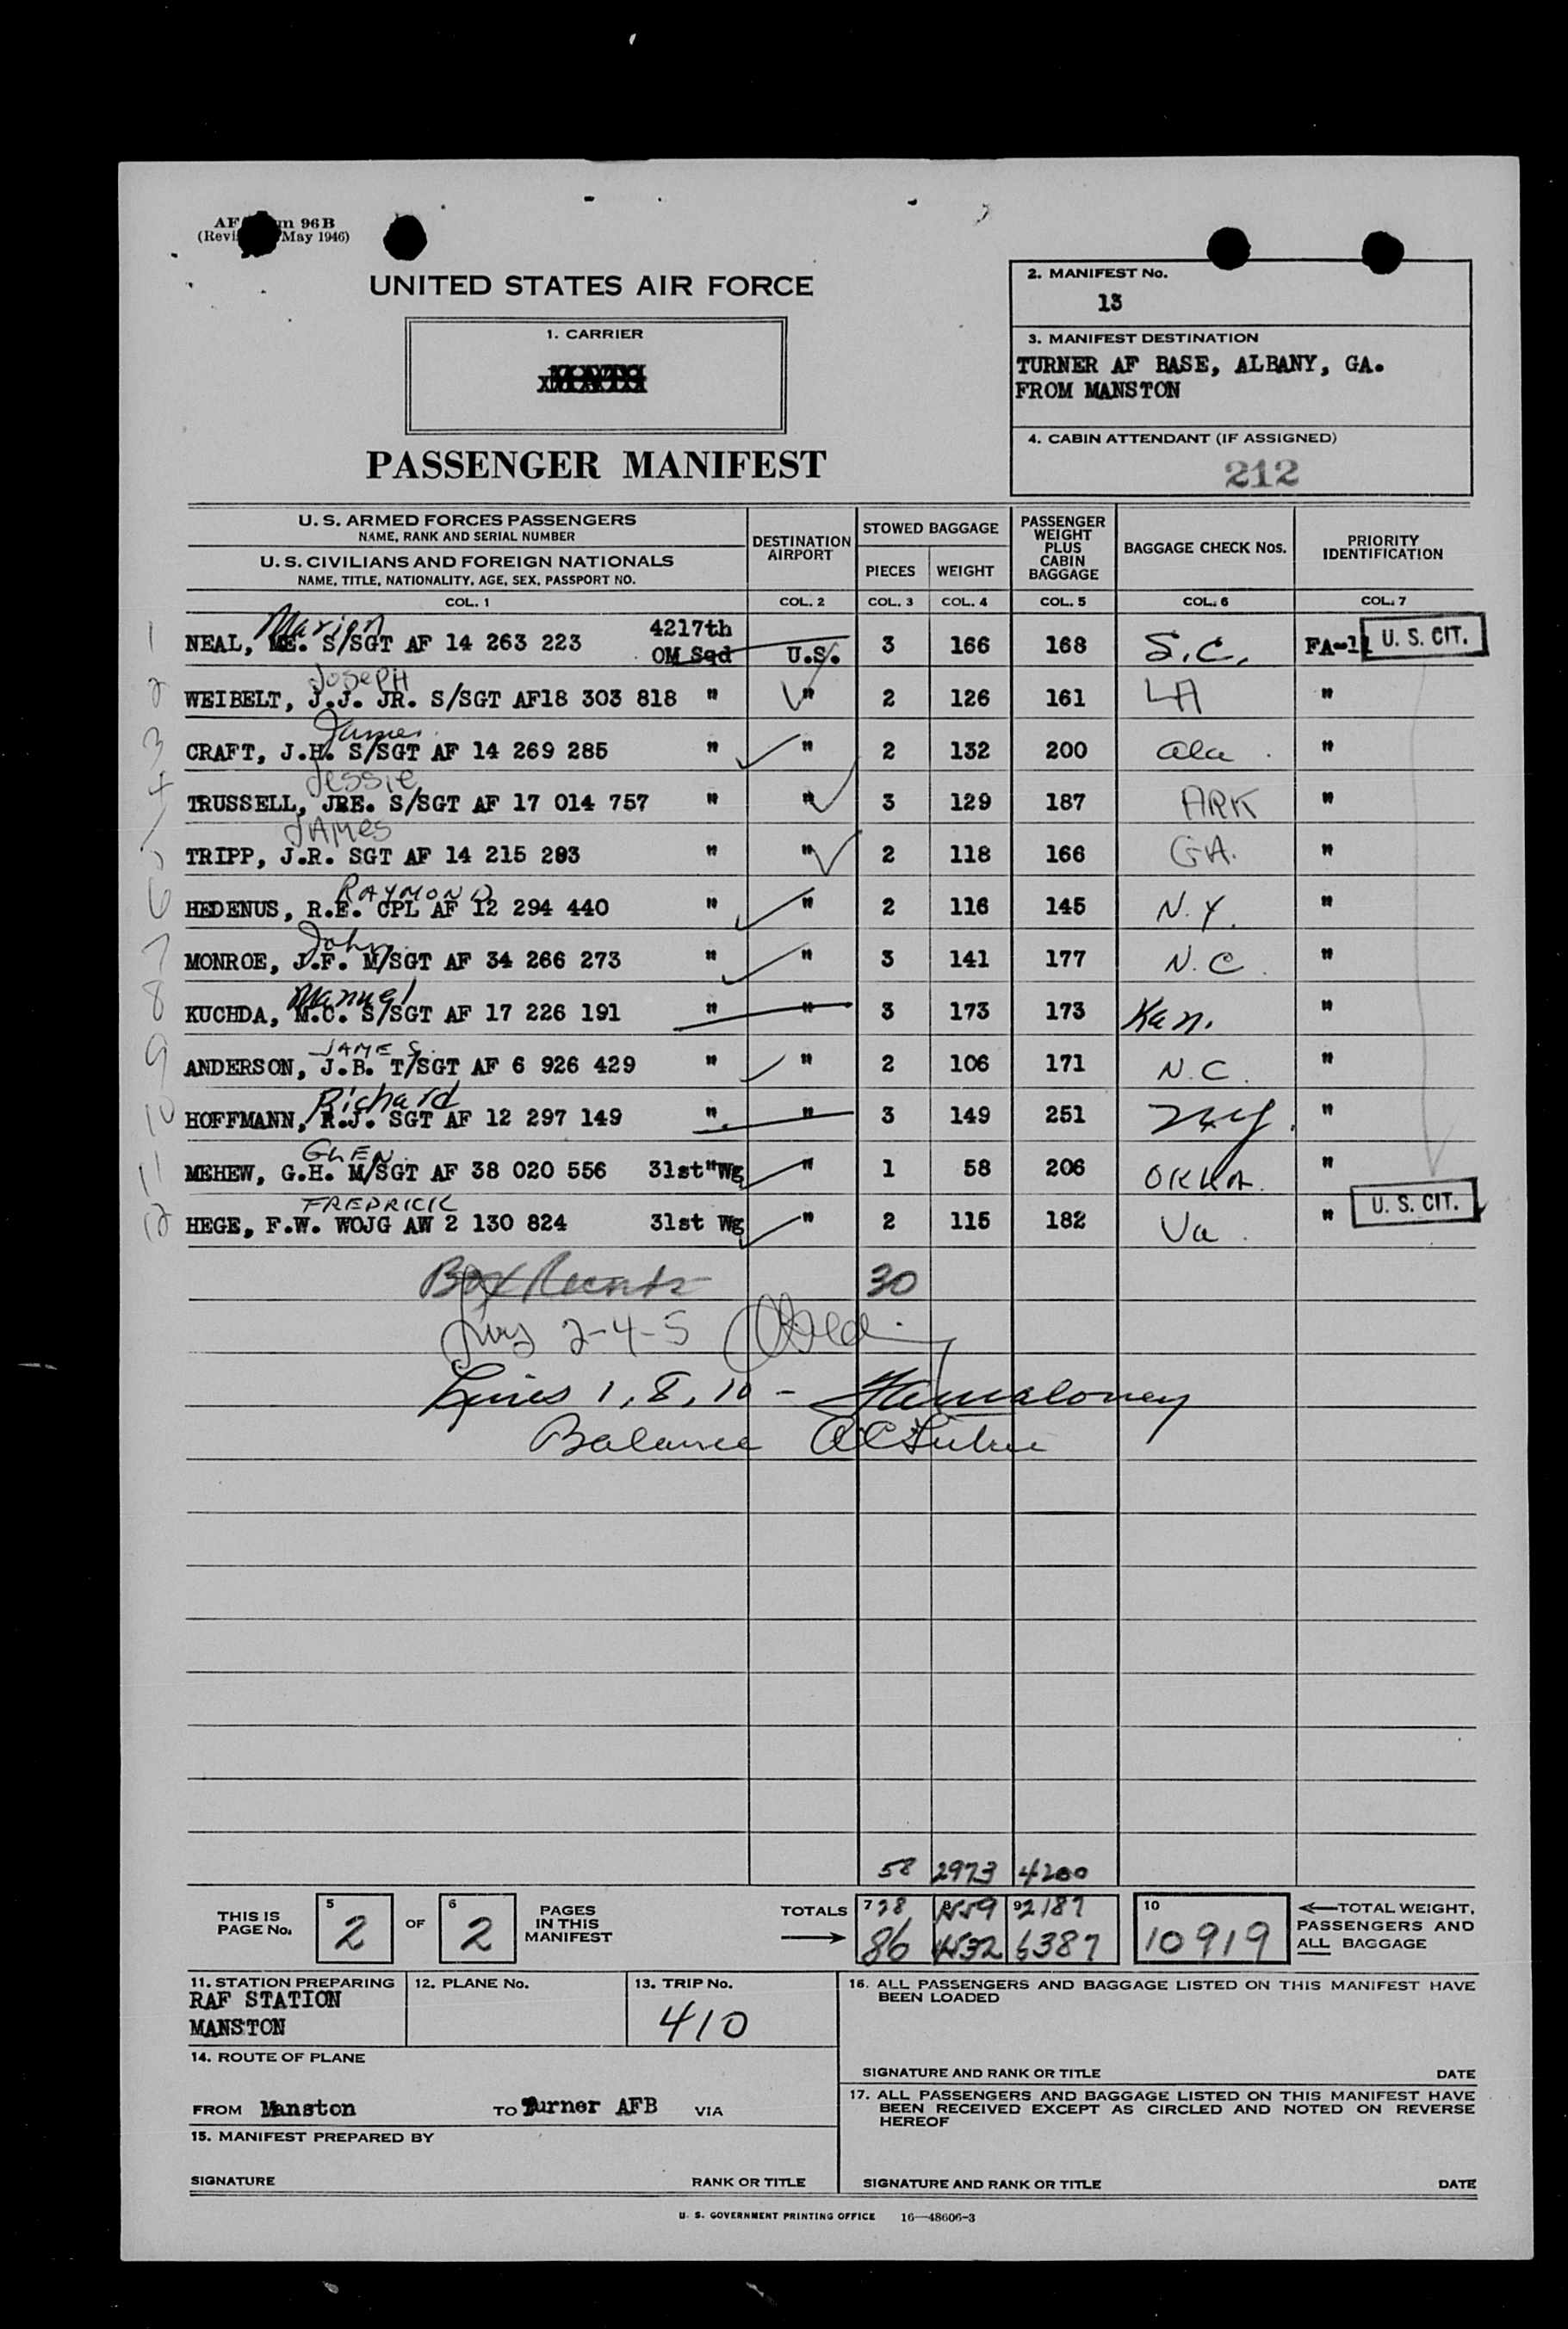 AF m 96B
(Revi May 1946)
UNITED STATES AIR FORCE
1. CARRIER
PASSENGER MANIFEST
2. MANIFEST No.
13
3. MANIFEST DESTINATION
TURNER AF BASE, ALBANY, GA.
FROM MANSTON
4. CABIN ATTENDANT (IF ASSIGNED)
212
U. S. ARMED FORCES PASSENGERS
NAME, RANK AND SERIAL NUMBER
U. S. CIVILIANS AND FOREIGN NATIONALS
NAME, TITLE, NATIONALITY, AGE, SEX, PASSPORT NO.
DESTINATION AIRPORT
STOWED BAGGAGE
PIECES WEIGHT
PASSENGER WEIGHT PLUS CABIN BAGGAGE
BAGGAGE CHECK Nos.
PRIORITY IDENTIFICATION
COL. 1 COL. 2 COL. 3 COL. 4 COL. 5 COL. 6 COL. 7
Marion 4217th
1 NEAL, S/SGT AF 14 263 223 OM Sqd U.S. 3 166 168 S.C. FA-11 U. S. CIT.
Joseph
2 WEIBELT, J.J. JR. S/SGT AF18 303 818 " " 2 126 161 LA "
James
3 CRAFT, J.H. S/SGT AF 14 269 285 " " 2 132 200 Ala. "
Jessie
4 TRUSSELL, JRE. S/SGT AF 17 014 757 " " 3 129 187 ARK "
JAMES
5 TRIPP, J.R. SGT AF 14 215 293 " " 2 118 166 GA. "
RAYMOND
6 HEDENUS, R.E. CPL AF 12 294 440 " " 2 116 145 N.Y. "
John
7 MONROE, J.F. M/SGT AF 34 266 273 " " 3 141 177 N.C. "
Manuel
8 KUCHDA, M.C. S/SGT AF 17 226 191 " " 3 173 173 Kan. "
JAMES
9 ANDERSON, J.B. T/SGT AF 6 926 429 " " 2 106 171 N.C. "
Richard
10 HOFFMANN, R.J. SGT AF 12 297 149 " " 3 149 251 N.Y. "
GLEN
11 MEHEW, G.H. M/SGT AF 38 020 556 31st"Wg " 1 58 206 OKLA. "
FREDRICK
12 HEGE, F.W. WOJG AW 2 130 824 31st Wg " 2 115 182 Va. " U. S. CIT.
Box 30
2-4-5
Lines 1, 8, 10 - Maloney
Balance
58 2973 4200
THIS IS PAGE No. 5 2 OF 6 2 PAGES IN THIS MANIFEST
TOTALS 7 28 1559 9 2187
86 4532 6387
10 10919
TOTAL WEIGHT, PASSENGERS AND ALL BAGGAGE
11. STATION PREPARING
RAF STATION
MANSTON
12. PLANE No.
13. TRIP No.
410
14. ROUTE OF PLANE
FROM Manston TO Turner AFB VIA
15. MANIFEST PREPARED BY
SIGNATURE RANK OR TITLE
16. ALL PASSENGERS AND BAGGAGE LISTED ON THIS MANIFEST HAVE
BEEN LOADED
SIGNATURE AND RANK OR TITLE DATE
17. ALL PASSENGERS AND BAGGAGE LISTED ON THIS MANIFEST HAVE
BEEN RECEIVED EXCEPT AS CIRCLED AND NOTED ON REVERSE
HEREOF
SIGNATURE AND RANK OR TITLE DATE
U. S. GOVERNMENT PRINTING OFFICE 16—48606-3